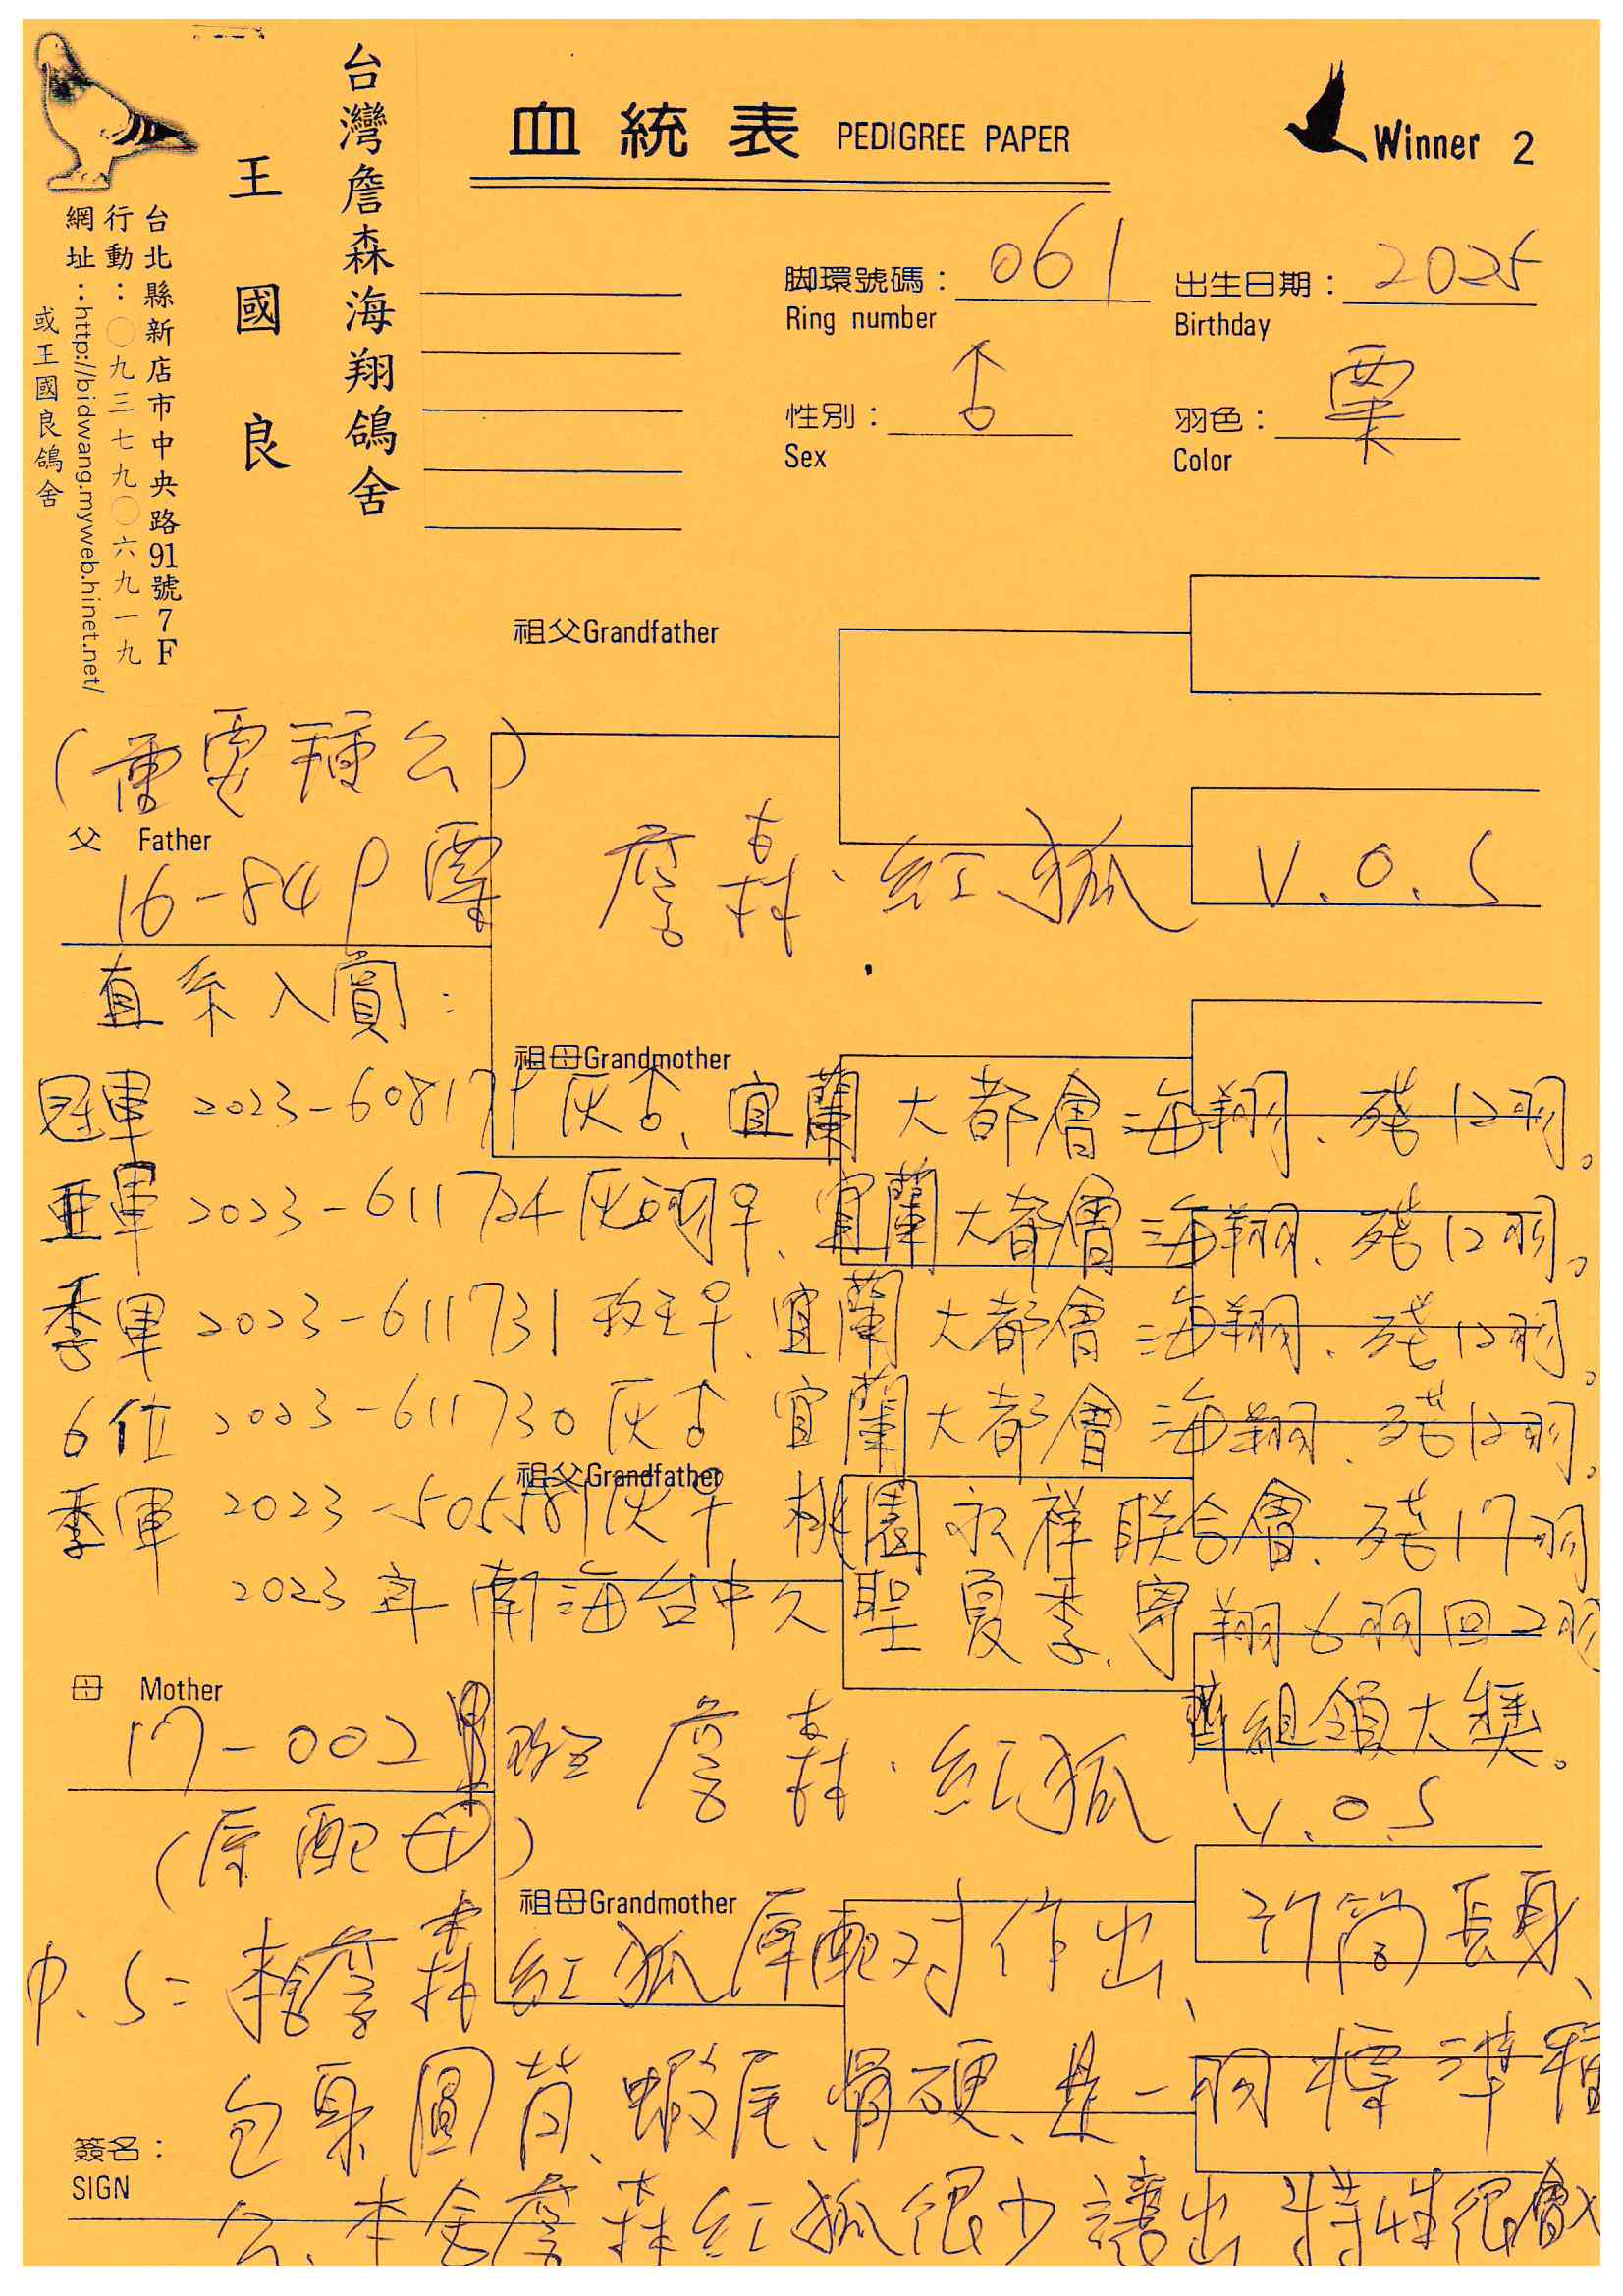 台灣詹森海翔鴿舍
王國良
台北縣新店市中央路91號7F
行動：〇九三七九〇六九一九
網址：http://bidwang.myweb.hinet.net/
或王國良鴿舍
血統表 PEDIGREE PAPER
Winner 2
脚環號碼： 061
Ring number
出生日期： 2025
Birthday
性別： ♂
Sex
羽色： 栗
Color
祖父Grandfather
(雷電種公)
父 Father
16-849 栗 詹森.紅狐 V.O.S
直系入賞：
祖母Grandmother
冠軍 2023-608171灰♂、宜蘭大都會海翔、殘12羽。
亞軍 2023-611724灰白羽♀、宜蘭大都會海翔、殘12羽。
季軍 2023-611731斑♀、宜蘭大都會海翔、殘12羽。
6位 2023-611730灰♂ 宜蘭大都會海翔、殘12羽。
祖父Grandfather
季軍 2023-灰♀ 桃園永祥联合會、殘17羽
2023年南海台中久聖夏季、寄翔6羽回2羽
母 Mother
齊組領大獎。
17-002 斑 詹森.紅狐 V.O.S
(原配母)
祖母Grandmother
P.S= 詹森紅狐原配对作出、長身、
包身圓背、蝦尾、骨硬、是一羽標準種
簽名：
SIGN
公、本舍詹森紅狐很少讓出 特性很會